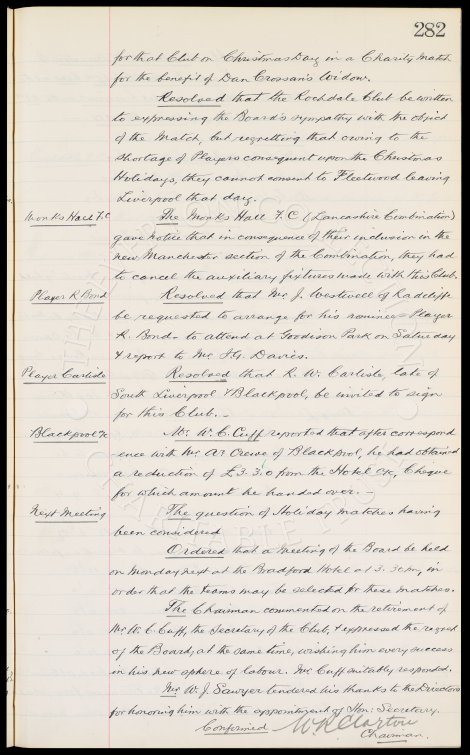 282
for that Club on Christmas Day in a Charity match
for the benefit of Dan Crossan's Widow.
Resolved that the Rochdale Club be written
to expressing the Board's sympathy with the object
of the Match, but regretting that owing to the
shortage of Players consequent upon the Christmas
Holidays, they cannot consent to Fleetwood leaving
Liverpool that day.
Monks Hall F.C The Monks Hall F.C (Lancashire Combination)
gave notice that in consequence of their inclusion in the
new Manchester section of the Combination, they had
to cancel the auxiliary fixtures made with this Club.
Player R Bond Resolved that Mr J. Westwell of Radcliffe
be requested to arrange for his nominee - Player
R. Bond - to attend at Goodison Park on Saturday
& report to Mr Davies.
Player Carlisle Resolved that R. W. Carlisle, late of
South Liverpool & Blackpool, be invited to sign
for this Club. -
Blackpool Mr W. C. Cuff reported that after correspond
ence with Mr Crewe of Blackpool, he had obtained
a reduction of £3.3.0 from the Hotel a/c, Cheque
for which amount he handed over.
Next Meeting The question of Holiday matches having
been considered
Ordered that a meeting of the Board be held
on Monday next at the Bradford Hotel at 3.30pm, in
order that the teams may be selected for these matches.
The Chairman commented on the retirement of
Mr W. C. Cuff, the Secretary of the Club, & expressed the regret
of the Board, at the same time, wishing him every success
in his new sphere of labour. Mr Cuff suitably responded.
Mr W. J. Sawyer tendered his thanks to the Directors
for honoring him with the appointment of Hon: Secretary.
Confirmed W R Clayton
Chairman.